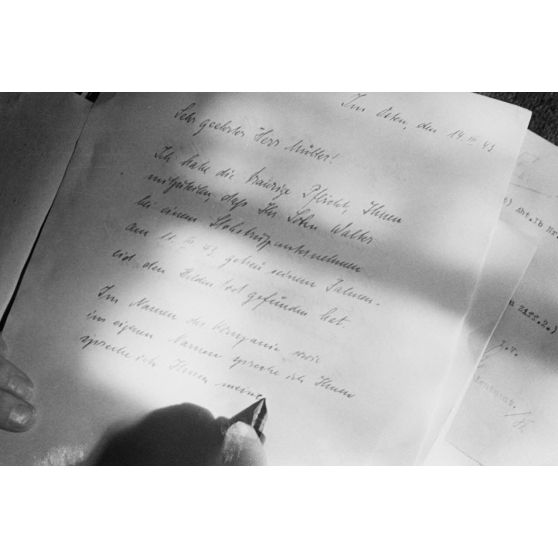 Im Osten, den 14. III. 43
Sehr geehrter Herr Müller!
Ich habe die traurige Pflicht, Ihnen
mitzuteilen, dass Ihr Sohn Walter
bei einem Stoßtruppunternehmen
am 11. III. 43. getreu seinem Fahnen-
eid den Heldentod gefunden hat.
Im Namen der Kompanie sowie
im eigenen Namen spreche ich Ihnen
spreche ich Ihnen meine
Abt.Ib Nr.